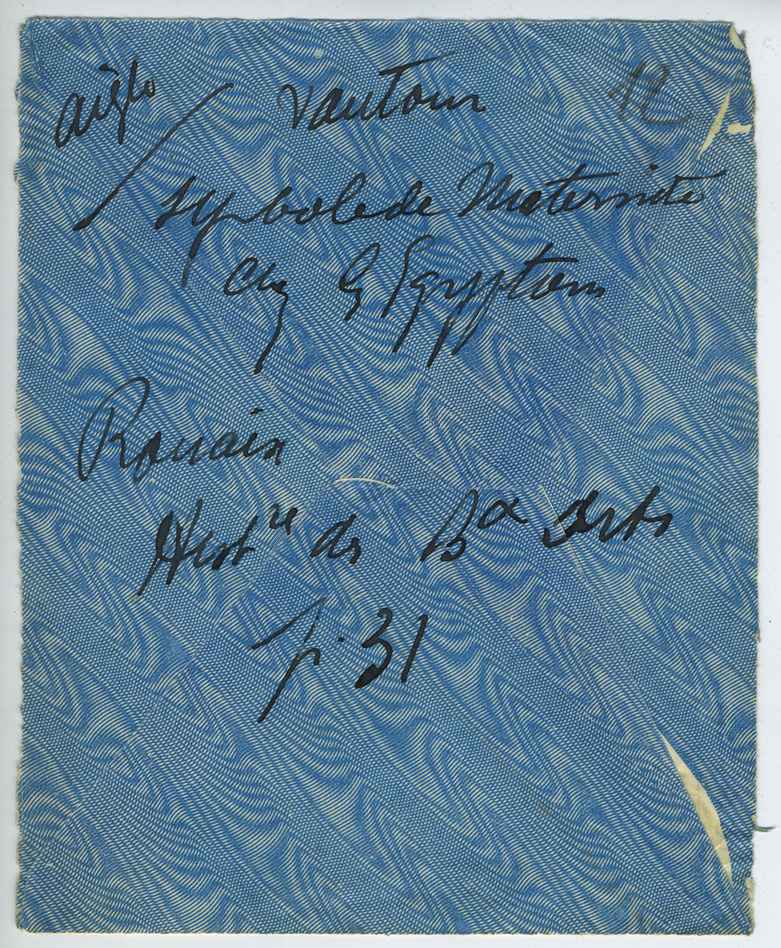 aigle / Vautour 12
Symbole de Maternité
chez les Egyptiens
Rouaix
Histre des Bx Arts
p. 31